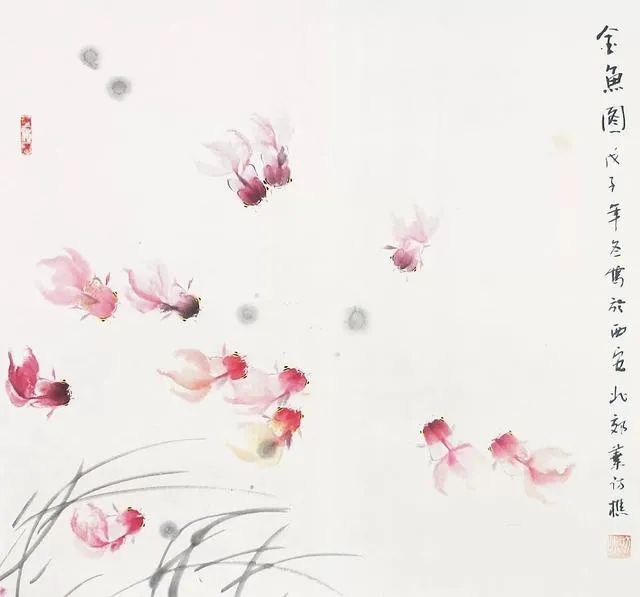 金魚圖戊子年冬寫於西安北郊葉訪樵